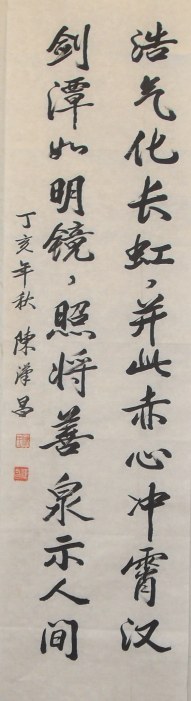 浩气化长虹，并此赤心冲霄汉
剑潭如明镜，照将善泉示人间
丁亥年秋 陈漢昌